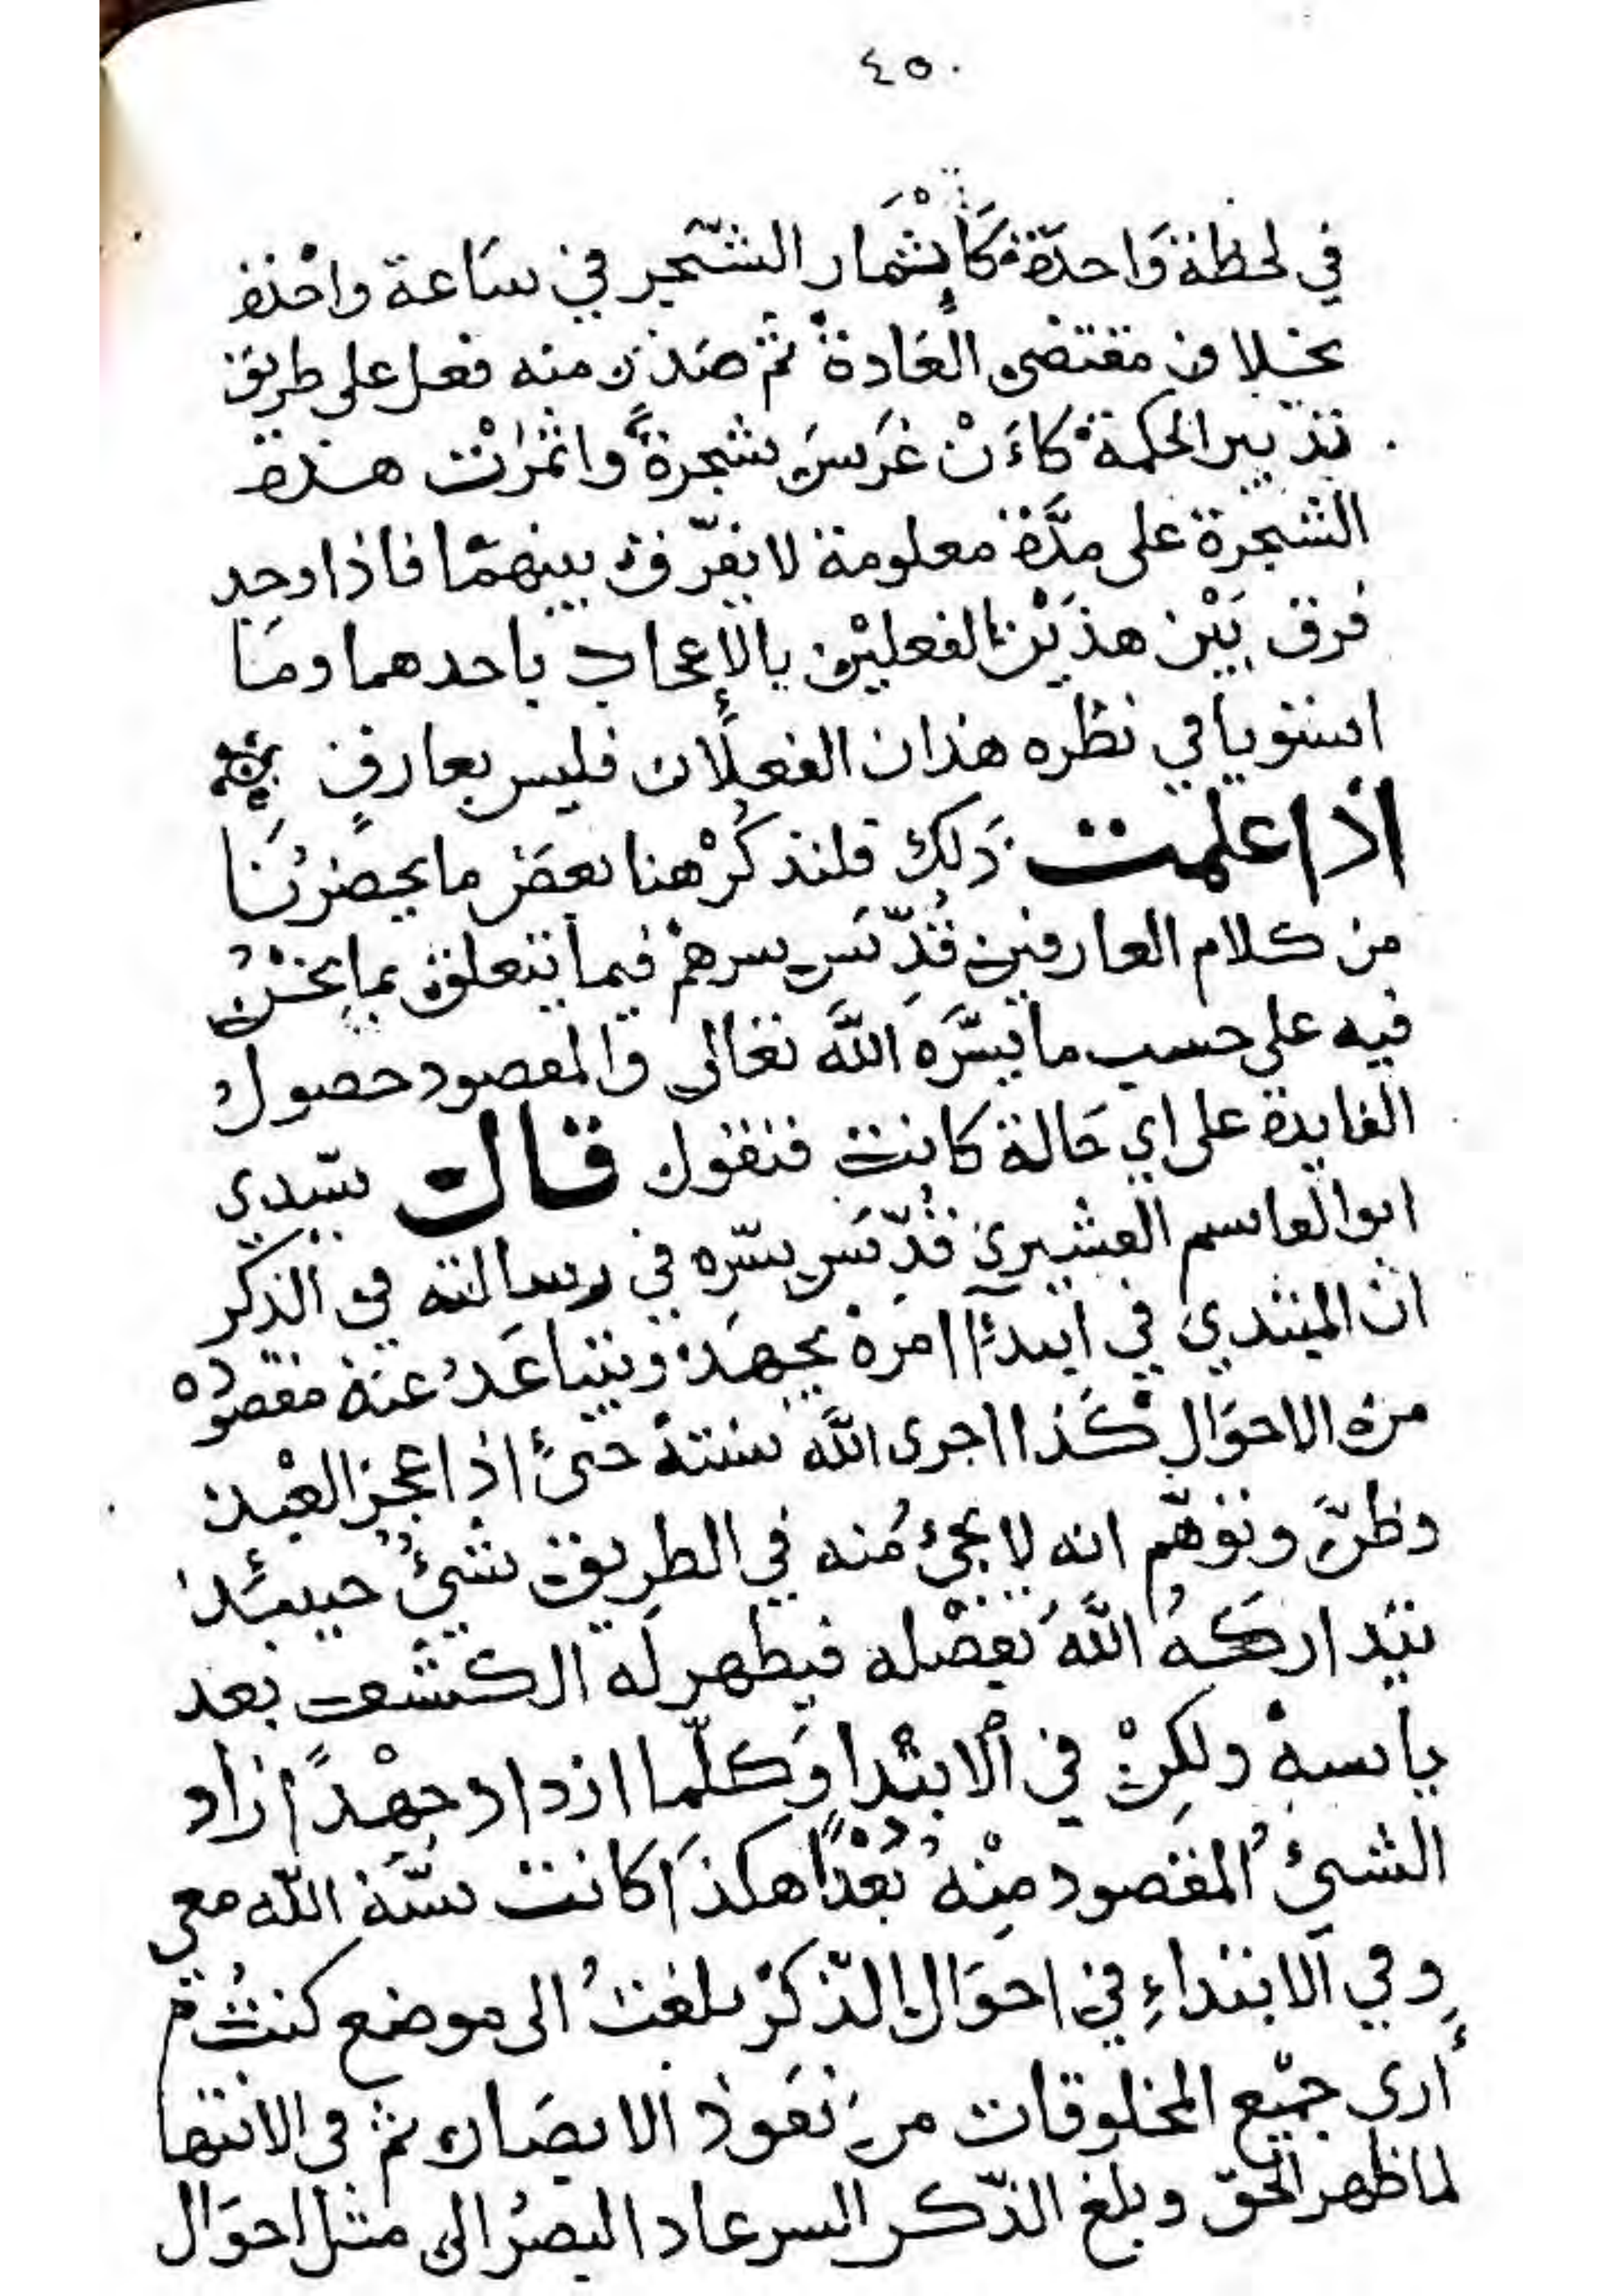 ٤٥٠
في لحظة وَاحدَة كَإِثْمَار الشّجر في سَاعة واحدة
بخلاف مقتضى العَادة ثم صَدَر منه فعل على طريق
تدبير الحكمة كاءَنْ غَرَسَ شجرةً واثمرَتْ هذه
الشجرة على مدَّة معلومة لا يفرّق بينهمَا فاذا وجد
فرق بَيْن هذَيْن الفعليْن بالإعجاب باحدهما ومَا
استويا في نظره هذان الفعلان فليس بعارفٍ
اذا علمت ذَلك فلنذكُرْ هنا بعضَ ما يحضرُنَا
من كلام العارفين قُدِّسَ سرهمْ فيما يتعلق بما نَحْنُ
فيه على حسب ما يسَّرَه اللَّه تعَالى والمقصود حصول
الفايدة على اي حَالة كانت فنقول قال سيّدي
ابو القاسم القشيرى قُدِّسَ سرّه في رسالته في الذكر
ان المبتدي في ابتدآء امره يجهَد ويتباعَدُ عنه مقصودُه
من الاحوَال كَذا اجرى اللَّه سنته حتىَّ اذا عجز العبْد
وظنَّ وتوَهّم انه لا يجئُ منه في الطريق شيئٌ حينئذ
يتداركَهُ اللَّهُ بفضْله فيظهر لَه الكشف بعد
ياسه ولكِنْ في الابتدا وَكلّما ازداد جهْدًا زاد
الشيئُ المقصود مِنْه بُعْدًا هكذَا كانت سنَّة اللّه معي
وفي الابتداءِ في احوَال الذّكرْ بلغتُ الى موضع كنتُ
أرى جميع المخلوقات من نفوذ الابصَار ثم فى الانتها
لما ظهر الحق وبلغ الذّكر السر عاد البصرُ الى مثل احوَال